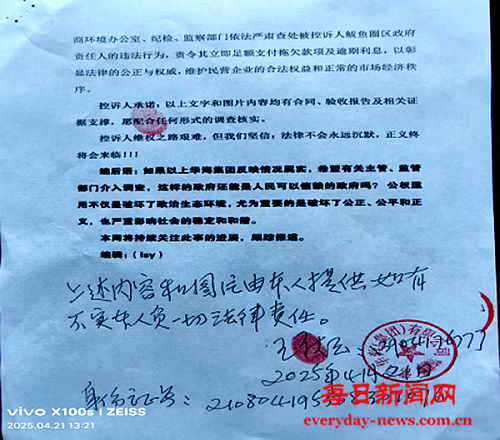 商环境办公室、纪检、监察部门依法严肃查处被控诉人鲅鱼圈区政府
责任人的违法行为，责令其立即足额支付拖欠款项及逾期利息，以彰
显法律的公正与权威，维护民营企业的合法权益和正常的市场经济秩
序。
控诉人承诺：以上文字和图片内容均有合同、验收报告及相关证
据支撑，愿配合任何形式的调查核实。
控诉人维权之路艰难，但我们坚信：法律不会永远沉默，正义终
将会来临！！！
编后语：如果以上华海集团反映情况属实，希望有关主管、监管
部门介入调查，这样的政府还能是人民可以信赖的政府吗？公权滥
用不仅是破坏了政治生态环境，尤为重要的是破坏了公正、公平和正
义，也严重影响社会的稳定和和谐。
本网将持续关注此事的进展，跟踪报道。
编辑：（lsy）
上述内容和图片由本人提供如有
不实本人负一切法律责任。
（集团）有限公司
2025年4月
身份证号：
每日新闻网
everyday-news.com.cn
vivo X100s | ZEISS
2025.04.21 13:21